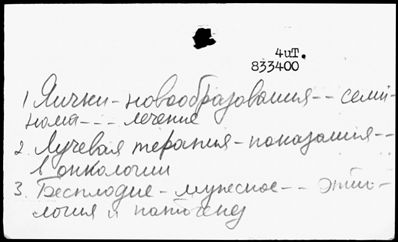 ЧиТ.
833400
1 Яички - новообразования -- семи-
нома --- лечение
2. Лучевая терапия - показания --
в онкологии
3. Бесплодие - мужское -- этио-
логия и патогенез